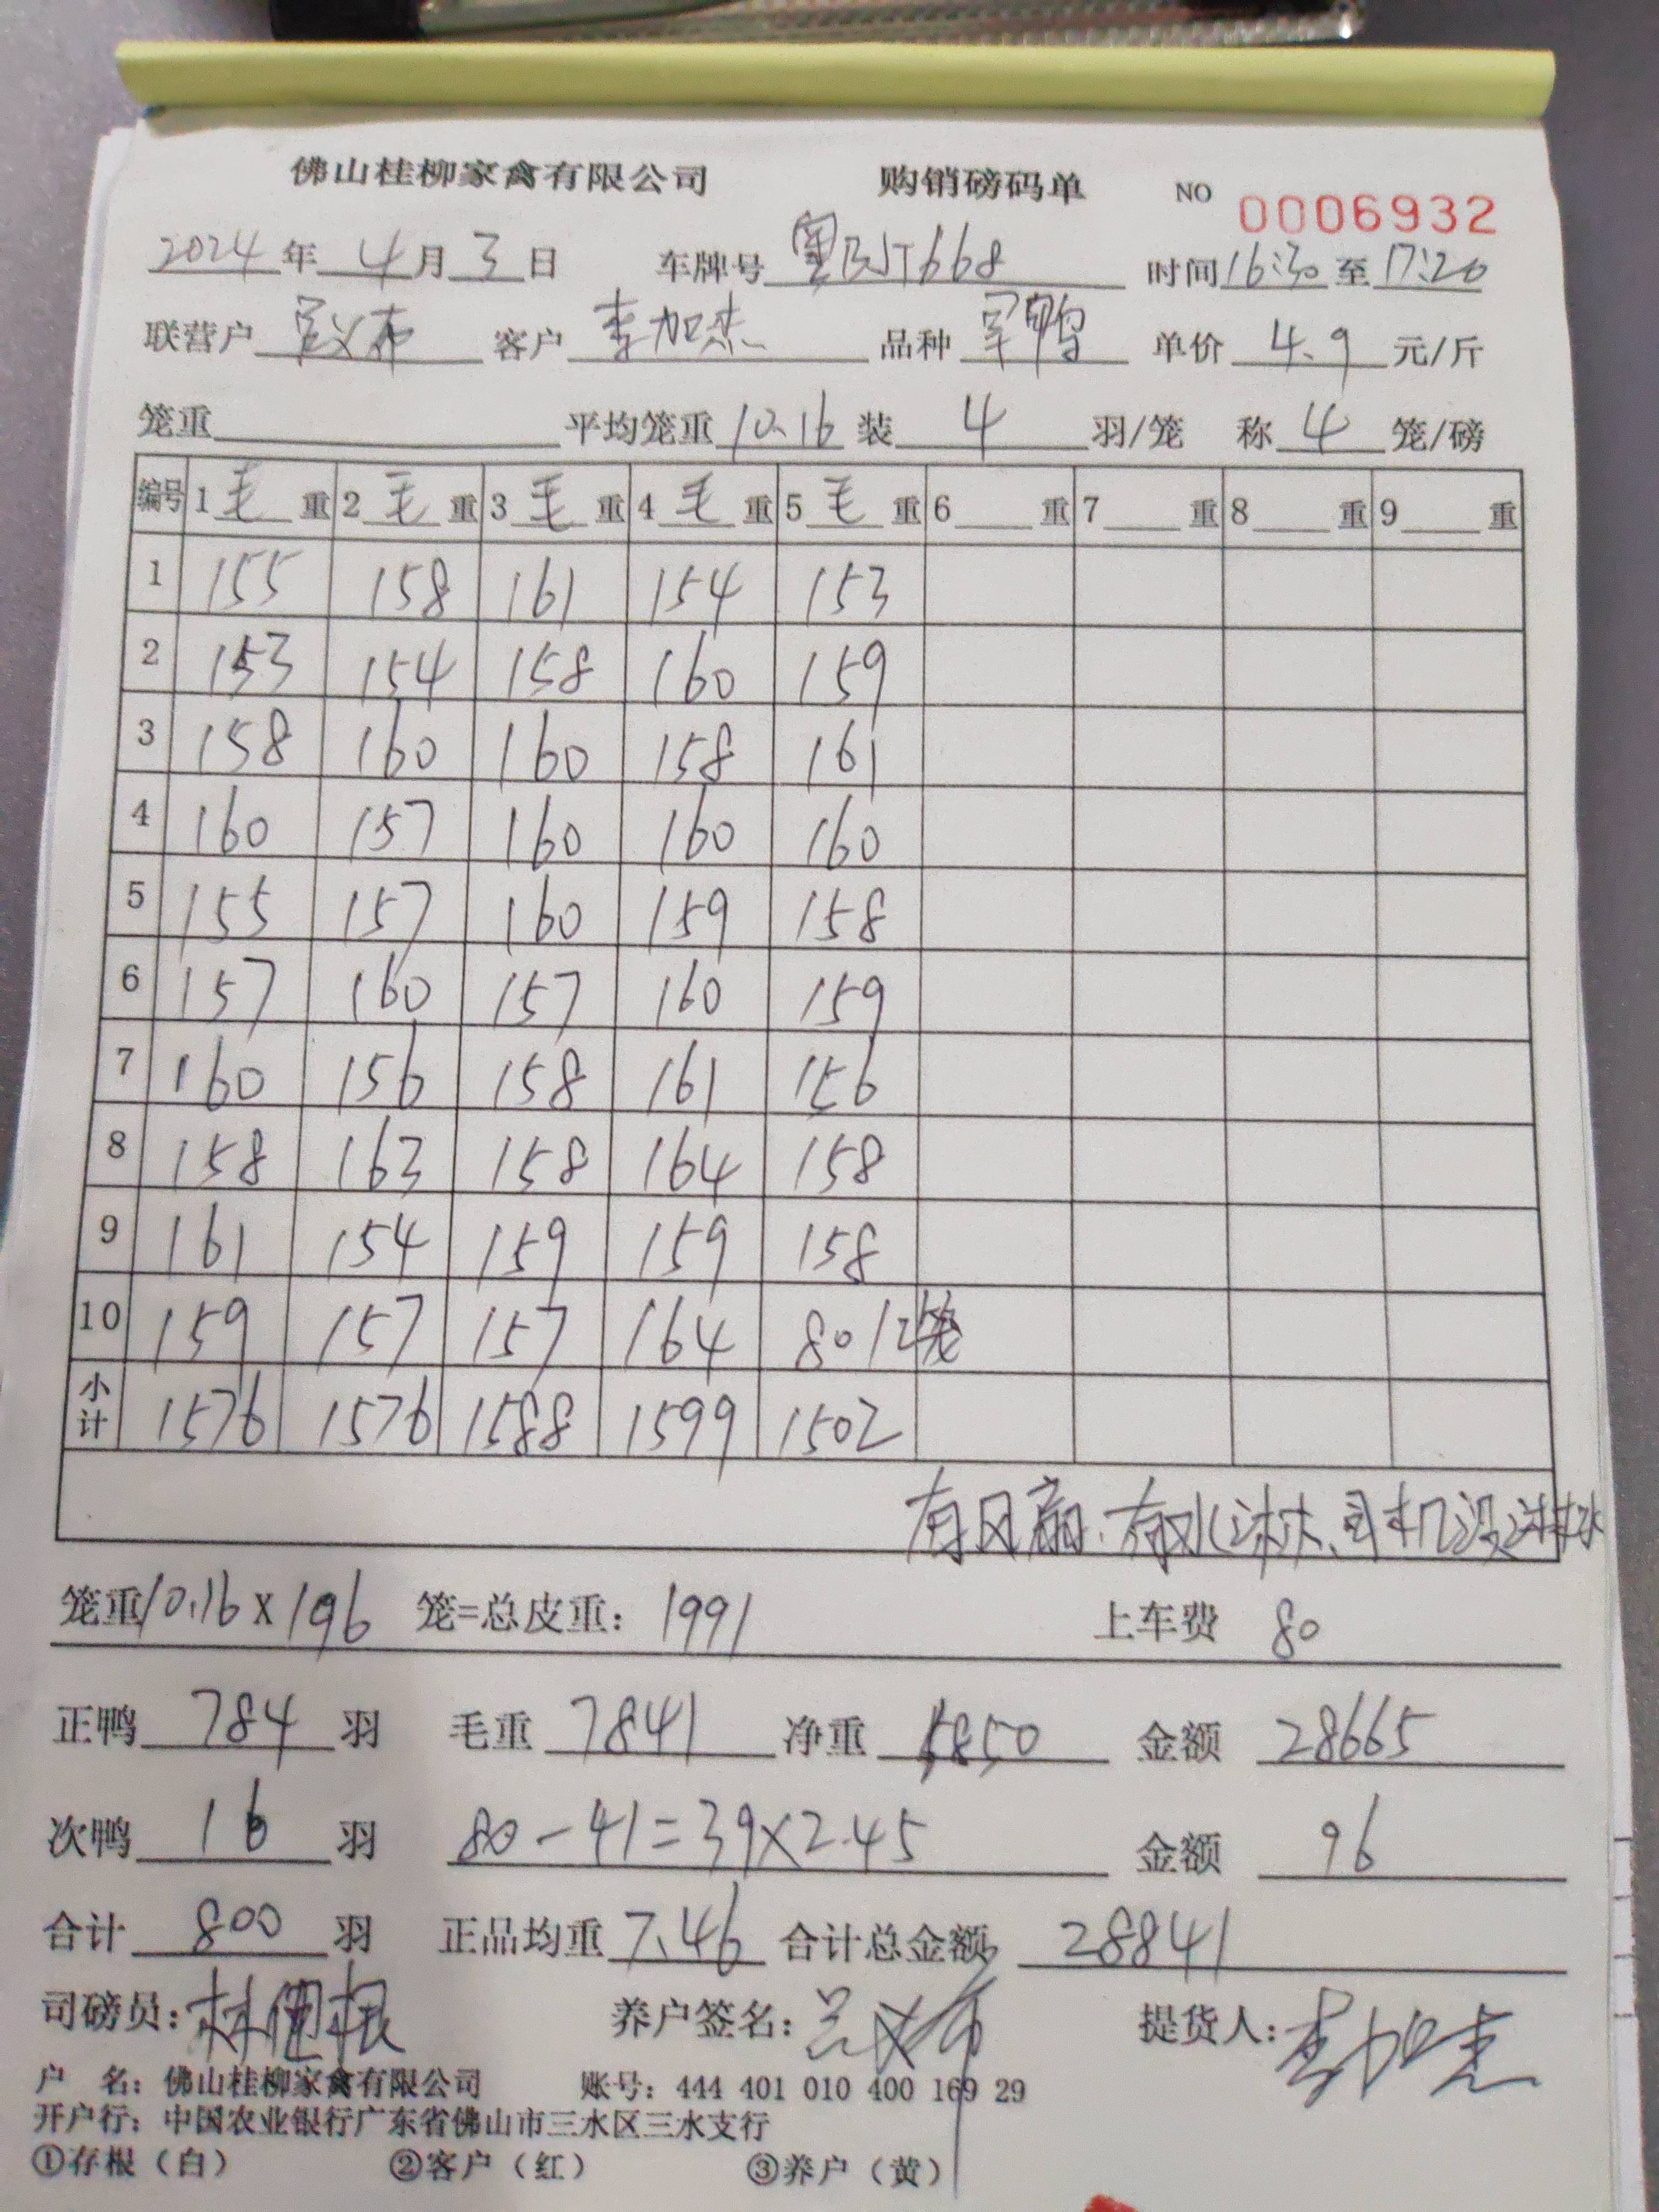 佛山桂柳家禽有限公司 购销磅码单 NO 0006932
2024年 4月 3日 车牌号 粤 JT668 时间 16:30 至 17:20
联营户 客户 李加杰 品种 军鸭 单价 4.9 元/斤
笼重 平均笼重 10.16 装 4 羽/笼 称 4 笼/磅
编号 1 毛 重 2 毛 重 3 毛 重 4 毛 重 5 毛 重 6 重 7 重 8 重 9 重
1 155 158 161 154 153
2 153 154 158 160 159
3 158 160 160 158 161
4 160 157 160 160 160
5 155 157 160 159 158
6 157 160 157 160 159
7 160 156 158 161 156
8 158 163 158 164 158
9 161 154 159 159 158
10 159 157 157 164 80/2笼
小计 1576 1576 1588 1599 1502
有风扇、有水淋、司机没淋水
笼重 10.16 x 196 笼=总皮重: 1991 上车费 80
正鸭 784 羽 毛重 7841 净重 5850 金额 28665
次鸭 16 羽 80-41=39×2.45 金额 96
合计 800 羽 正品均重 7.46 合计总金额 28841
司磅员: 养户签名: 提货人: 李加杰
户 名: 佛山桂柳家禽有限公司 账号: 444 401 010 400 169 29
开户行: 中国农业银行广东省佛山市三水区三水支行
①存根（白） ②客户（红） ③养户（黄）